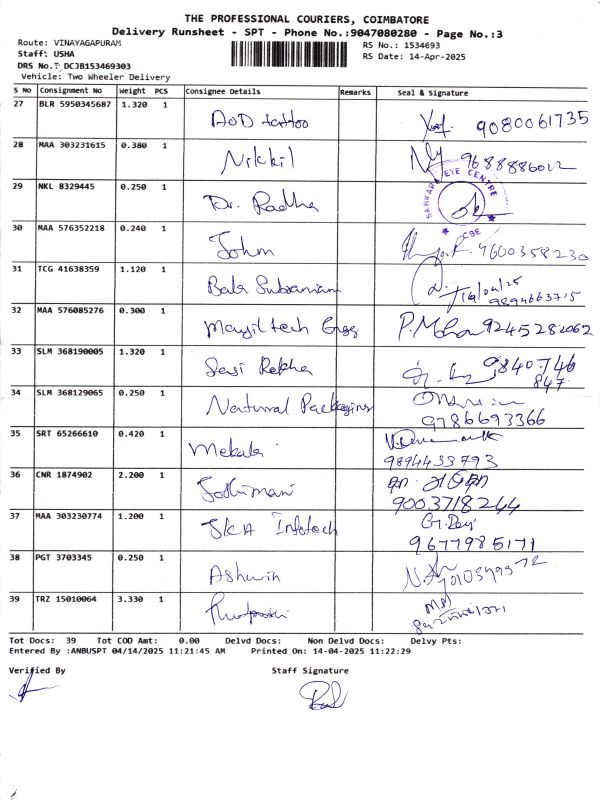 THE PROFESSIONAL COURIERS, COIMBATORE
Delivery Runsheet - SPT - Phone No.:9047080280 - Page No.:3
Route: VINAYAGAPURAM
Staff: USHA
DRS No.: DCJB153469303
Vehicle: Two Wheeler Delivery
RS No.: 1534693
RS Date: 14-Apr-2025
S No Consignment No Weight PCS Consignee Details Remarks Seal & Signature
27 BLR 5950345687 1.320 1 AOD tattoo 9080061735
28 MAA 303231615 0.380 1 Nikkil 9688886022
29 NKL 8329445 0.250 1 Dr. Radha SANKARA EYE CENTRE CBE
30 MAA 576352218 0.240 1 John 9600358230
31 TCG 41638359 1.120 1 Bala Subramani 9894663715
32 MAA 576085276 0.300 1 Mayiltech Engg P.Mohan 9245282062
33 SLM 368190005 1.320 1 Sasi Rekha 9840746
847
34 SLM 368129065 0.250 1 Natural Packaging
9786693366
35 SRT 65266610 0.420 1 Mekala
9894433793
36 CNR 1874902 2.200 1 Jothimani
9003718244
37 MAA 303230774 1.200 1 SKA Infotech
9677985171
38 PGT 3703345 0.250 1 Ashwin
39 TRZ 15010064 3.330 1
Tot Docs: 39 Tot COD Amt: 0.00 Delvd Docs: Non Delvd Docs: Delvy Pts:
Entered By :ANBUSPT 04/14/2025 11:21:45 AM Printed On: 14-04-2025 11:22:29
Verified By Staff Signature